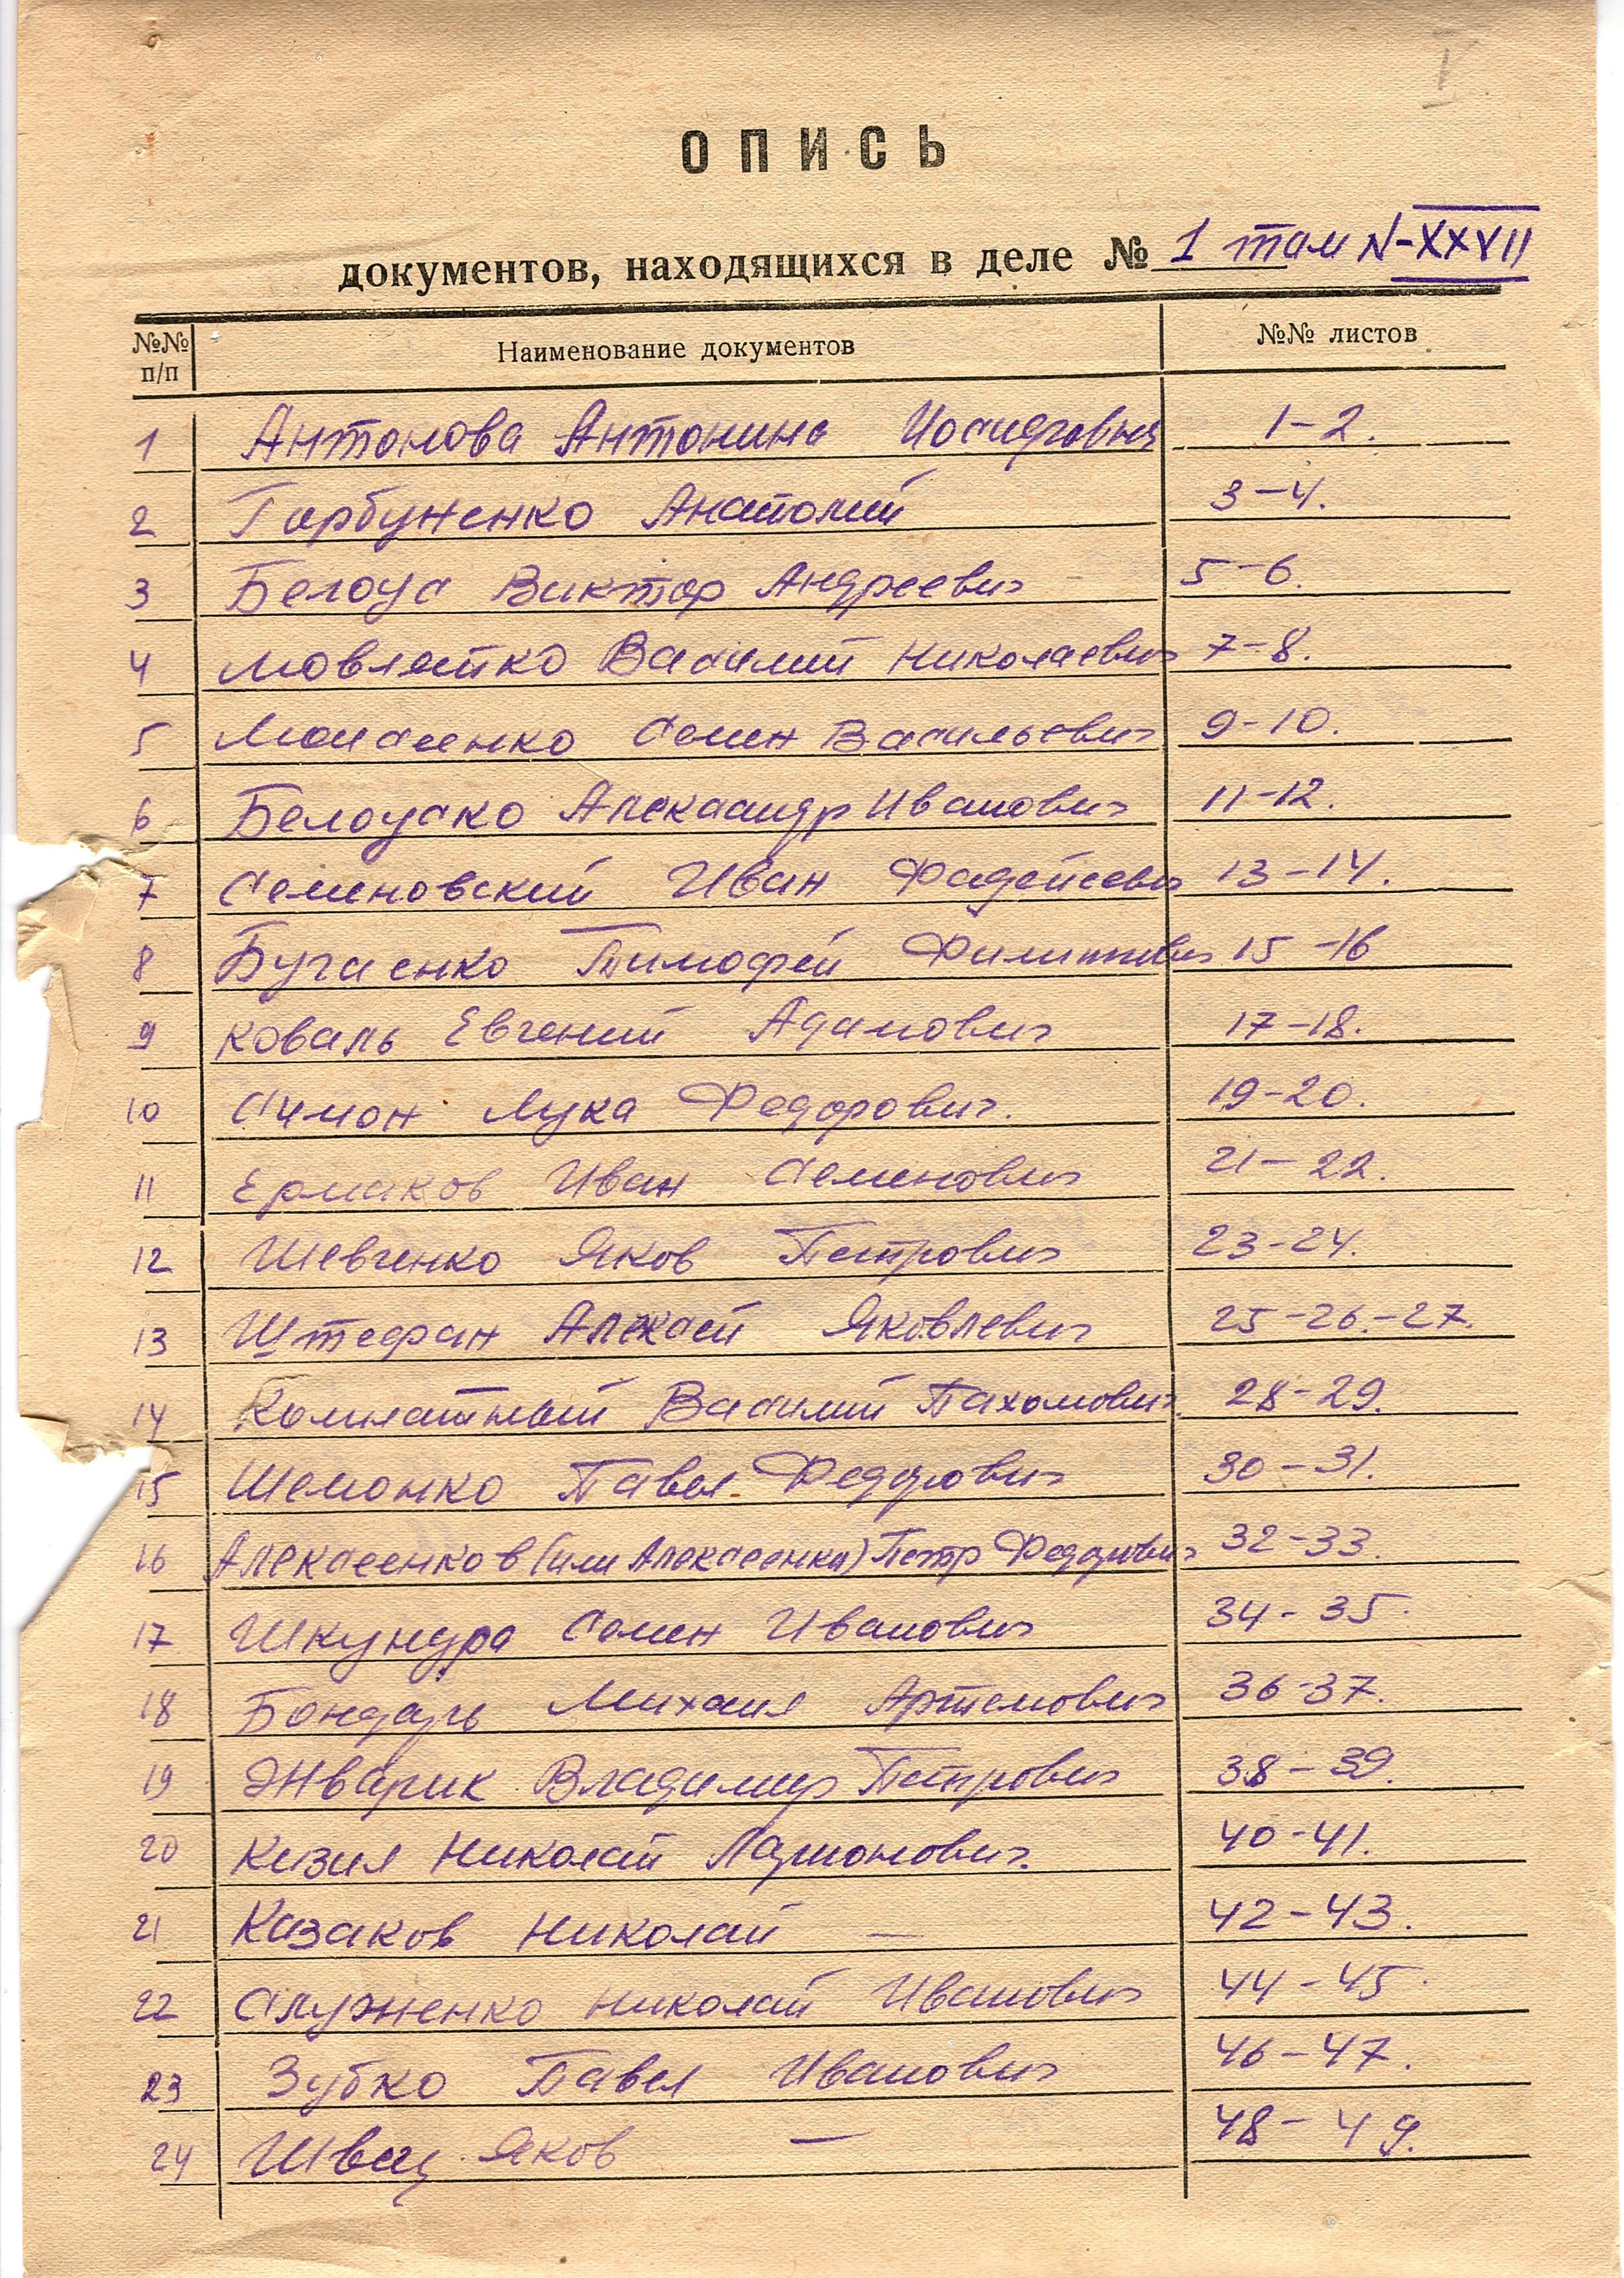 I
ОПИСЬ
документов, находящихся в деле № 1 том N-XXVII
№№ п/п Наименование документов №№ листов
1 Антонова Антонина Иосифовна 1-2.
2 Горбуненко Анатолий 3-4.
3 Белоус Виктор Андреевич 5-6.
4 Мовлятко Василий Николаевич 7-8.
5 Моисеенко Семен Васильевич 9-10.
6 Белоуско Александр Иванович 11-12.
7 Семеновский Иван Фадейеевич 13-14.
8 Бугаенко Тимофей Филиппович 15-16
9 Коваль Евгений Адамович 17-18.
10 Симон Лука Федорович. 19-20.
11 Ермаков Иван Семенович 21-22.
12 Шевченко Яков Петрович 23-24.
13 Штефан Алексей Яковлевич 25-26.-27.
14 Комнатный Василий Пахомович. 28-29.
15 Шемонко Павел Федорович 30-31.
16 Алексеенков (или Алексеенко) Петр Федорович 32-33.
17 Шкундра Семен Иванович 34-35.
18 Бондарь Михаил Артемович 36-37.
19 Жварик Владимир Петрович 38-39.
20 Кизил Николай Ларионович. 40-41.
21 Казаков Николай — 42-43.
22 Служенко Николай Иванович 44-45.
23 Зубко Павел Иванович 46-47.
24 Швец Яков — 48-49.